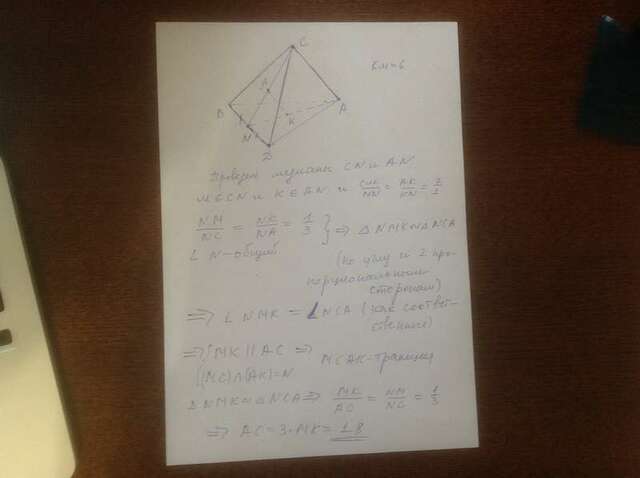 C
KM=6
M
B
A
K
N
D
Проведем медианы CN и AN
M ∈ CN и K ∈ AN и CM/MN = AK/KN = 2/1
NM/NC = NK/NA = 1/3 } ⇒ △ NMK ∾ △ NCA
∠ N - общий
(по углу и 2 про-
порциональным
сторонам)
⇒ ∠ NMK = ∠ NCA (как соответ-
ственные)
⇒ { MK || AC ⇒ MCAK - трапеция
(MC) ∩ (AK) = N
△ NMK ∾ △ NCA ⇒ MK/AC = NM/NC = 1/3
⇒ AC = 3·MK = 18